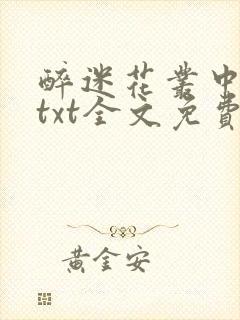 醉迷花叢中
txt全文免費
黃金安